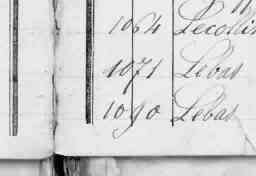 1064 Lecolli
1071 Lebas
1090 Lebas